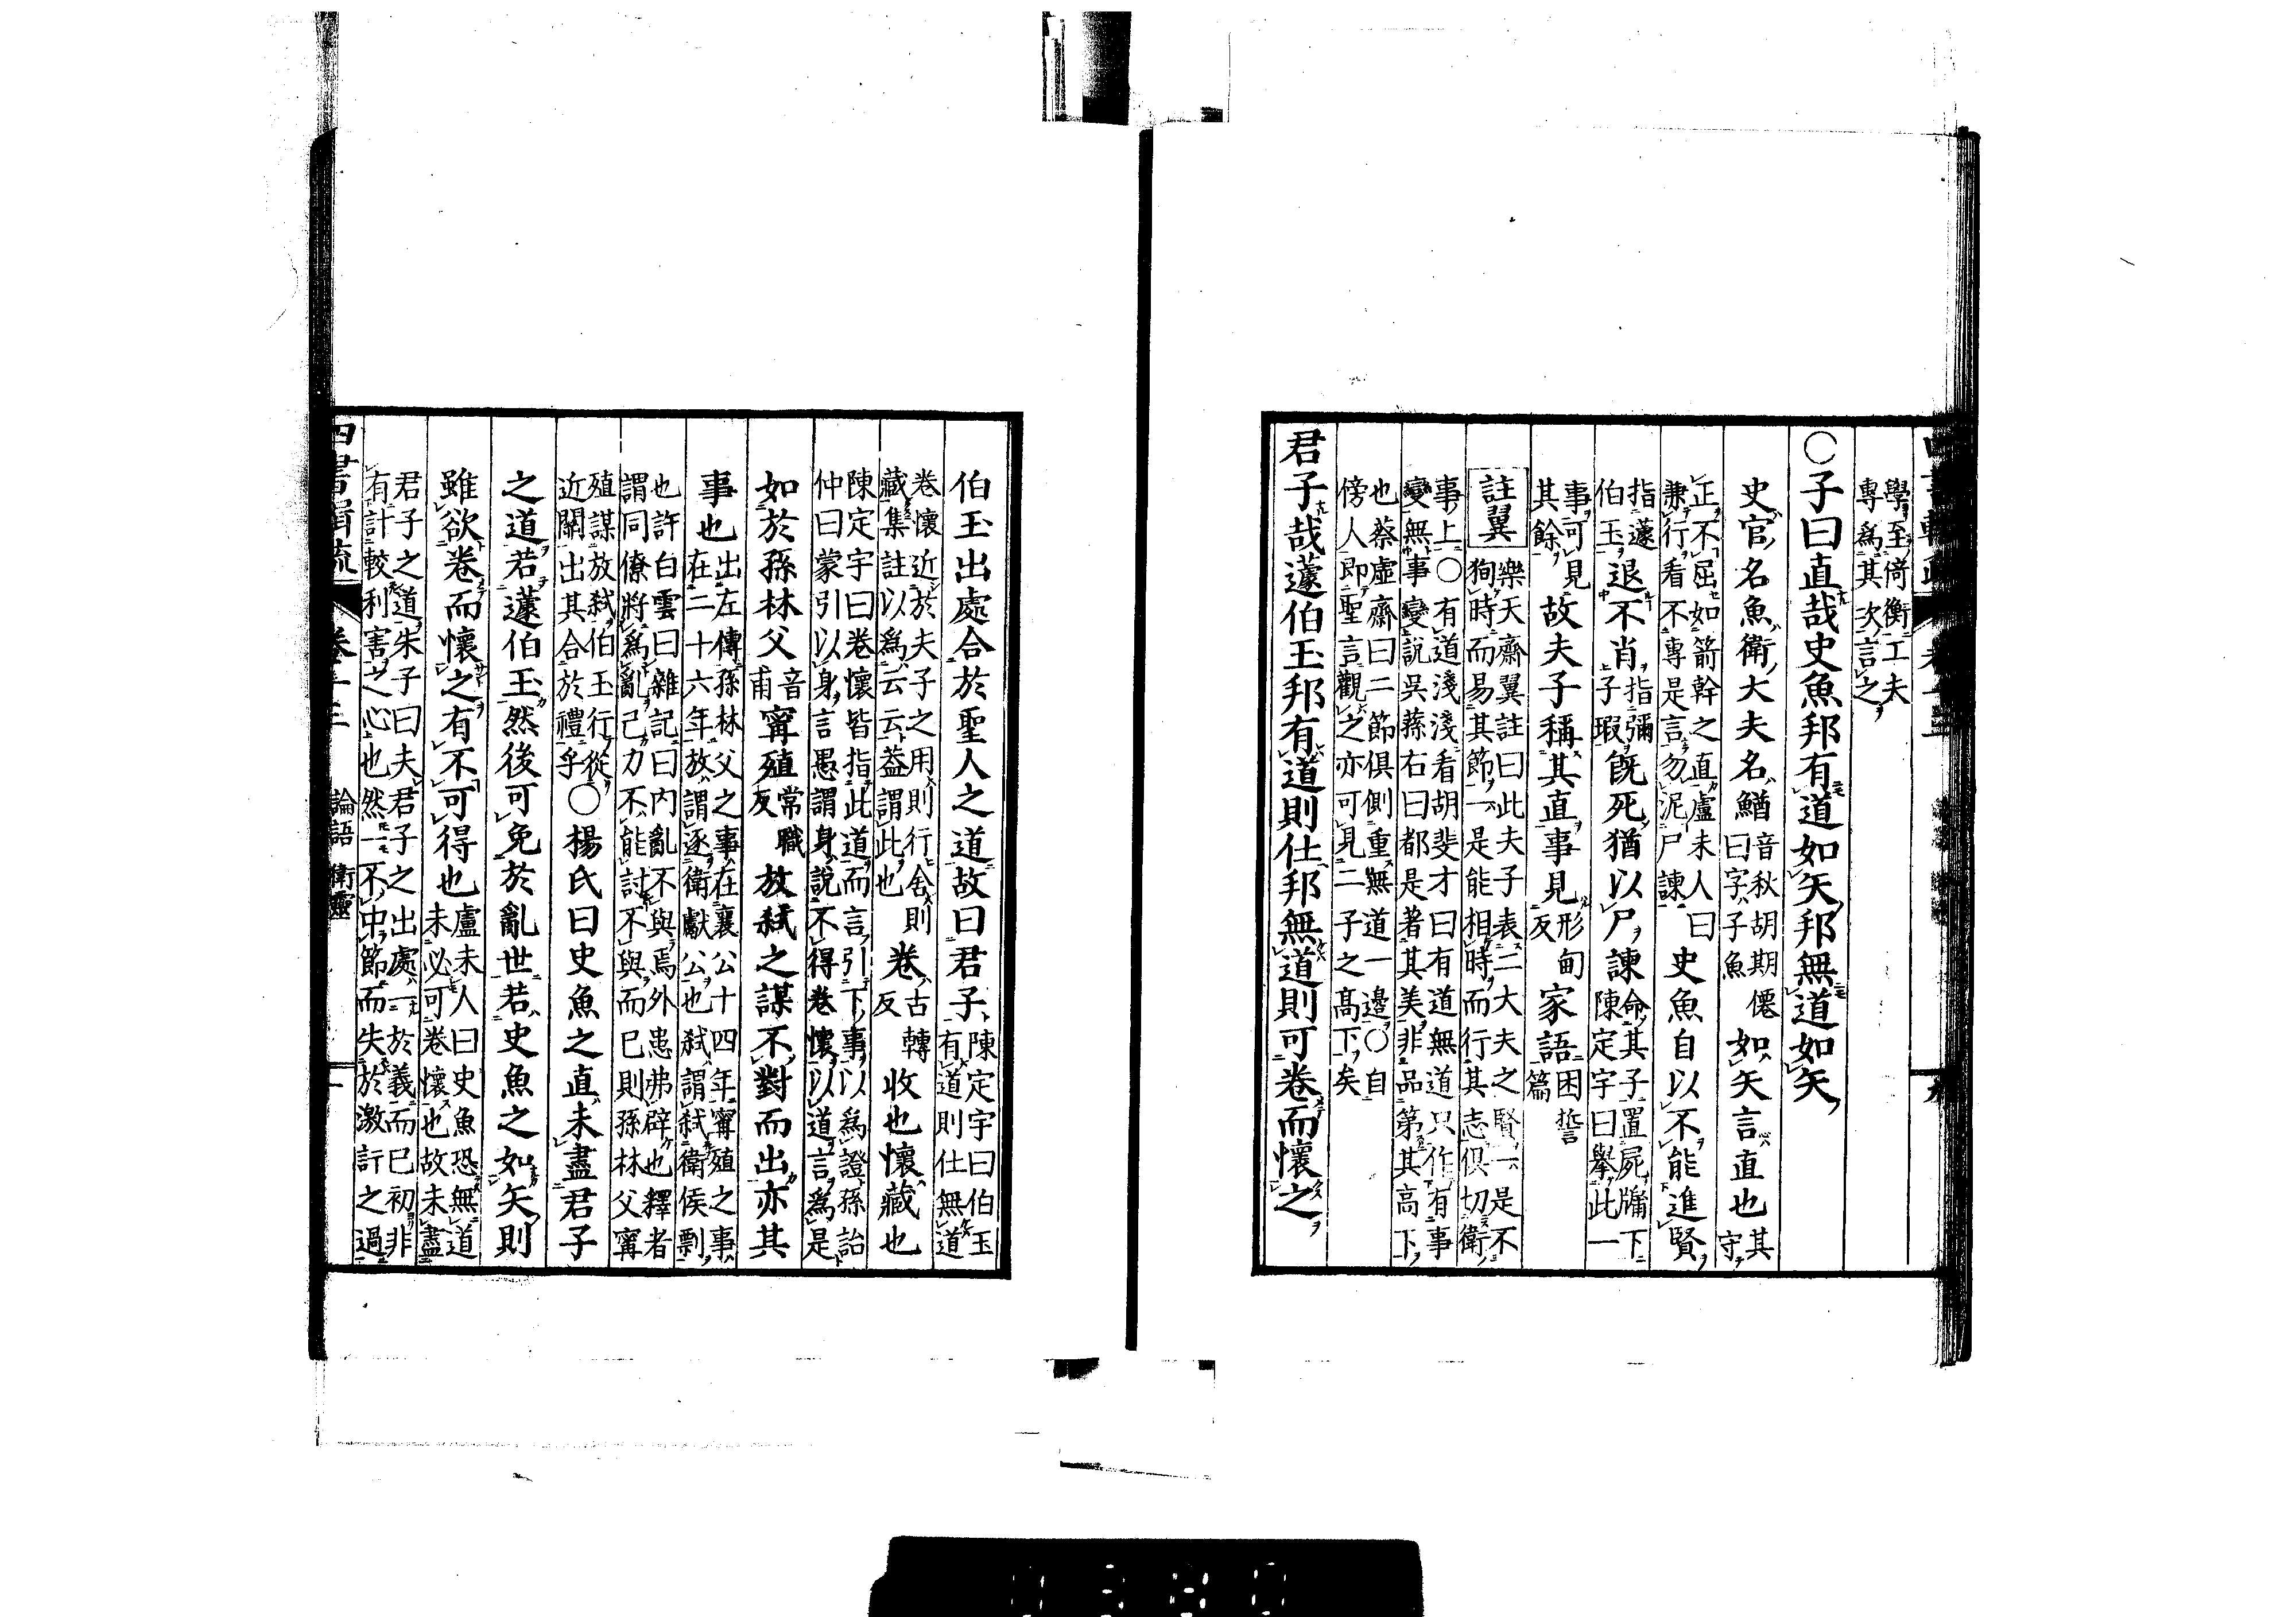 學至倚衡工夫
專爲其次言之
○子曰直哉史魚邦有道如矢邦無道如矢
史官名魚衛大夫名鰌音秋胡期僊
曰字子魚如矢言直也其
守
正不屈如箭幹之直盧未人曰
兼行看不專是言勿泥尸諫史魚自以不能進賢
指蘧
伯玉退不肖指彌
子瑕旣死猶以尸諫命其子置屍牖下
陳定宇曰擧此一
事可見
其餘故夫子稱其直事見形甸
反家語困誓
篇
註翼樂天齋翼註曰此夫子表二大夫之賢一是不
狥時而易其節一是能相時而行其志俱切衛
事上○有道淺淺看胡斐才曰有道無道只作有事
變無事變說吳蓀右曰都是著其美非品第其高下
也蔡虛齋曰二節俱側重無道一邊○自
傍人卽聖言觀之亦可見二子之高下矣
君子哉蘧伯玉邦有道則仕邦無道則可卷而懷之
伯玉出處合於聖人之道故曰君子陳定宇曰伯玉
有道則仕無道
卷懷近於夫子之用則行舍則
藏集註以爲云云葢謂此也卷古轉
反收也懷藏也
陳定宇曰卷懷皆指此道而言引下事以爲證孫詒
仲曰蒙引以身言愚謂身說不得卷懷以道言爲是
如於孫林父音
甫甯殖常職
反放弑之謀不對而出亦其
事也出左傳孫林父之事在襄公十四年甯殖之事
在二十六年放謂逐衛獻公也弑謂弑衛侯剽
也許白雲曰雜記曰內亂不與焉外患弗辟也釋者
謂同僚將爲亂己力不能討不與而已則孫林父甯
殖謀放弑伯玉行從
近關出其合於禮乎○楊氏曰史魚之直未盡君子
之道若蘧伯玉然後可免於亂世若史魚之如矢則
雖欲卷而懷之有不可得也盧未人曰史魚恐無道
未必可卷懷也故未盡
君子之道朱子曰夫君子之出處一於義而已初非
有計較利害之心也然一不中節而失於激訐之過
論語 衛靈